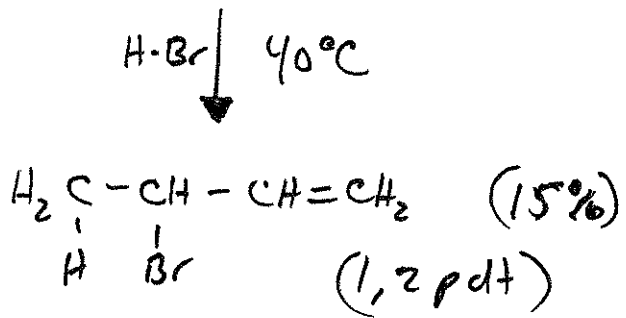 H-Br 40°C
H₂C-CH-CH=CH₂ (15%)
H Br (1,2 pdt)